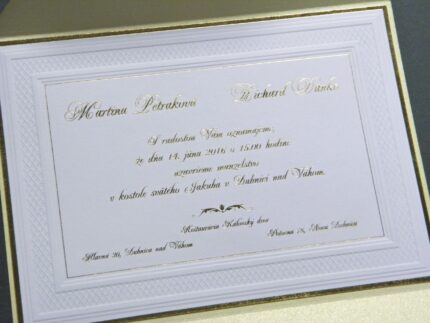 Martina Petráková Richard Danko
S radosťou Vám oznamujeme,
že dňa 14. júna 2016 o 15.00 hodine
uzavrieme manželstvo
v kostole svätého Jakuba v Dubnici nad Váhom.
Reštaurácia Kaštieľ
Hlavná 20, Dubnica nad Váhom
78, Nová Dubnica